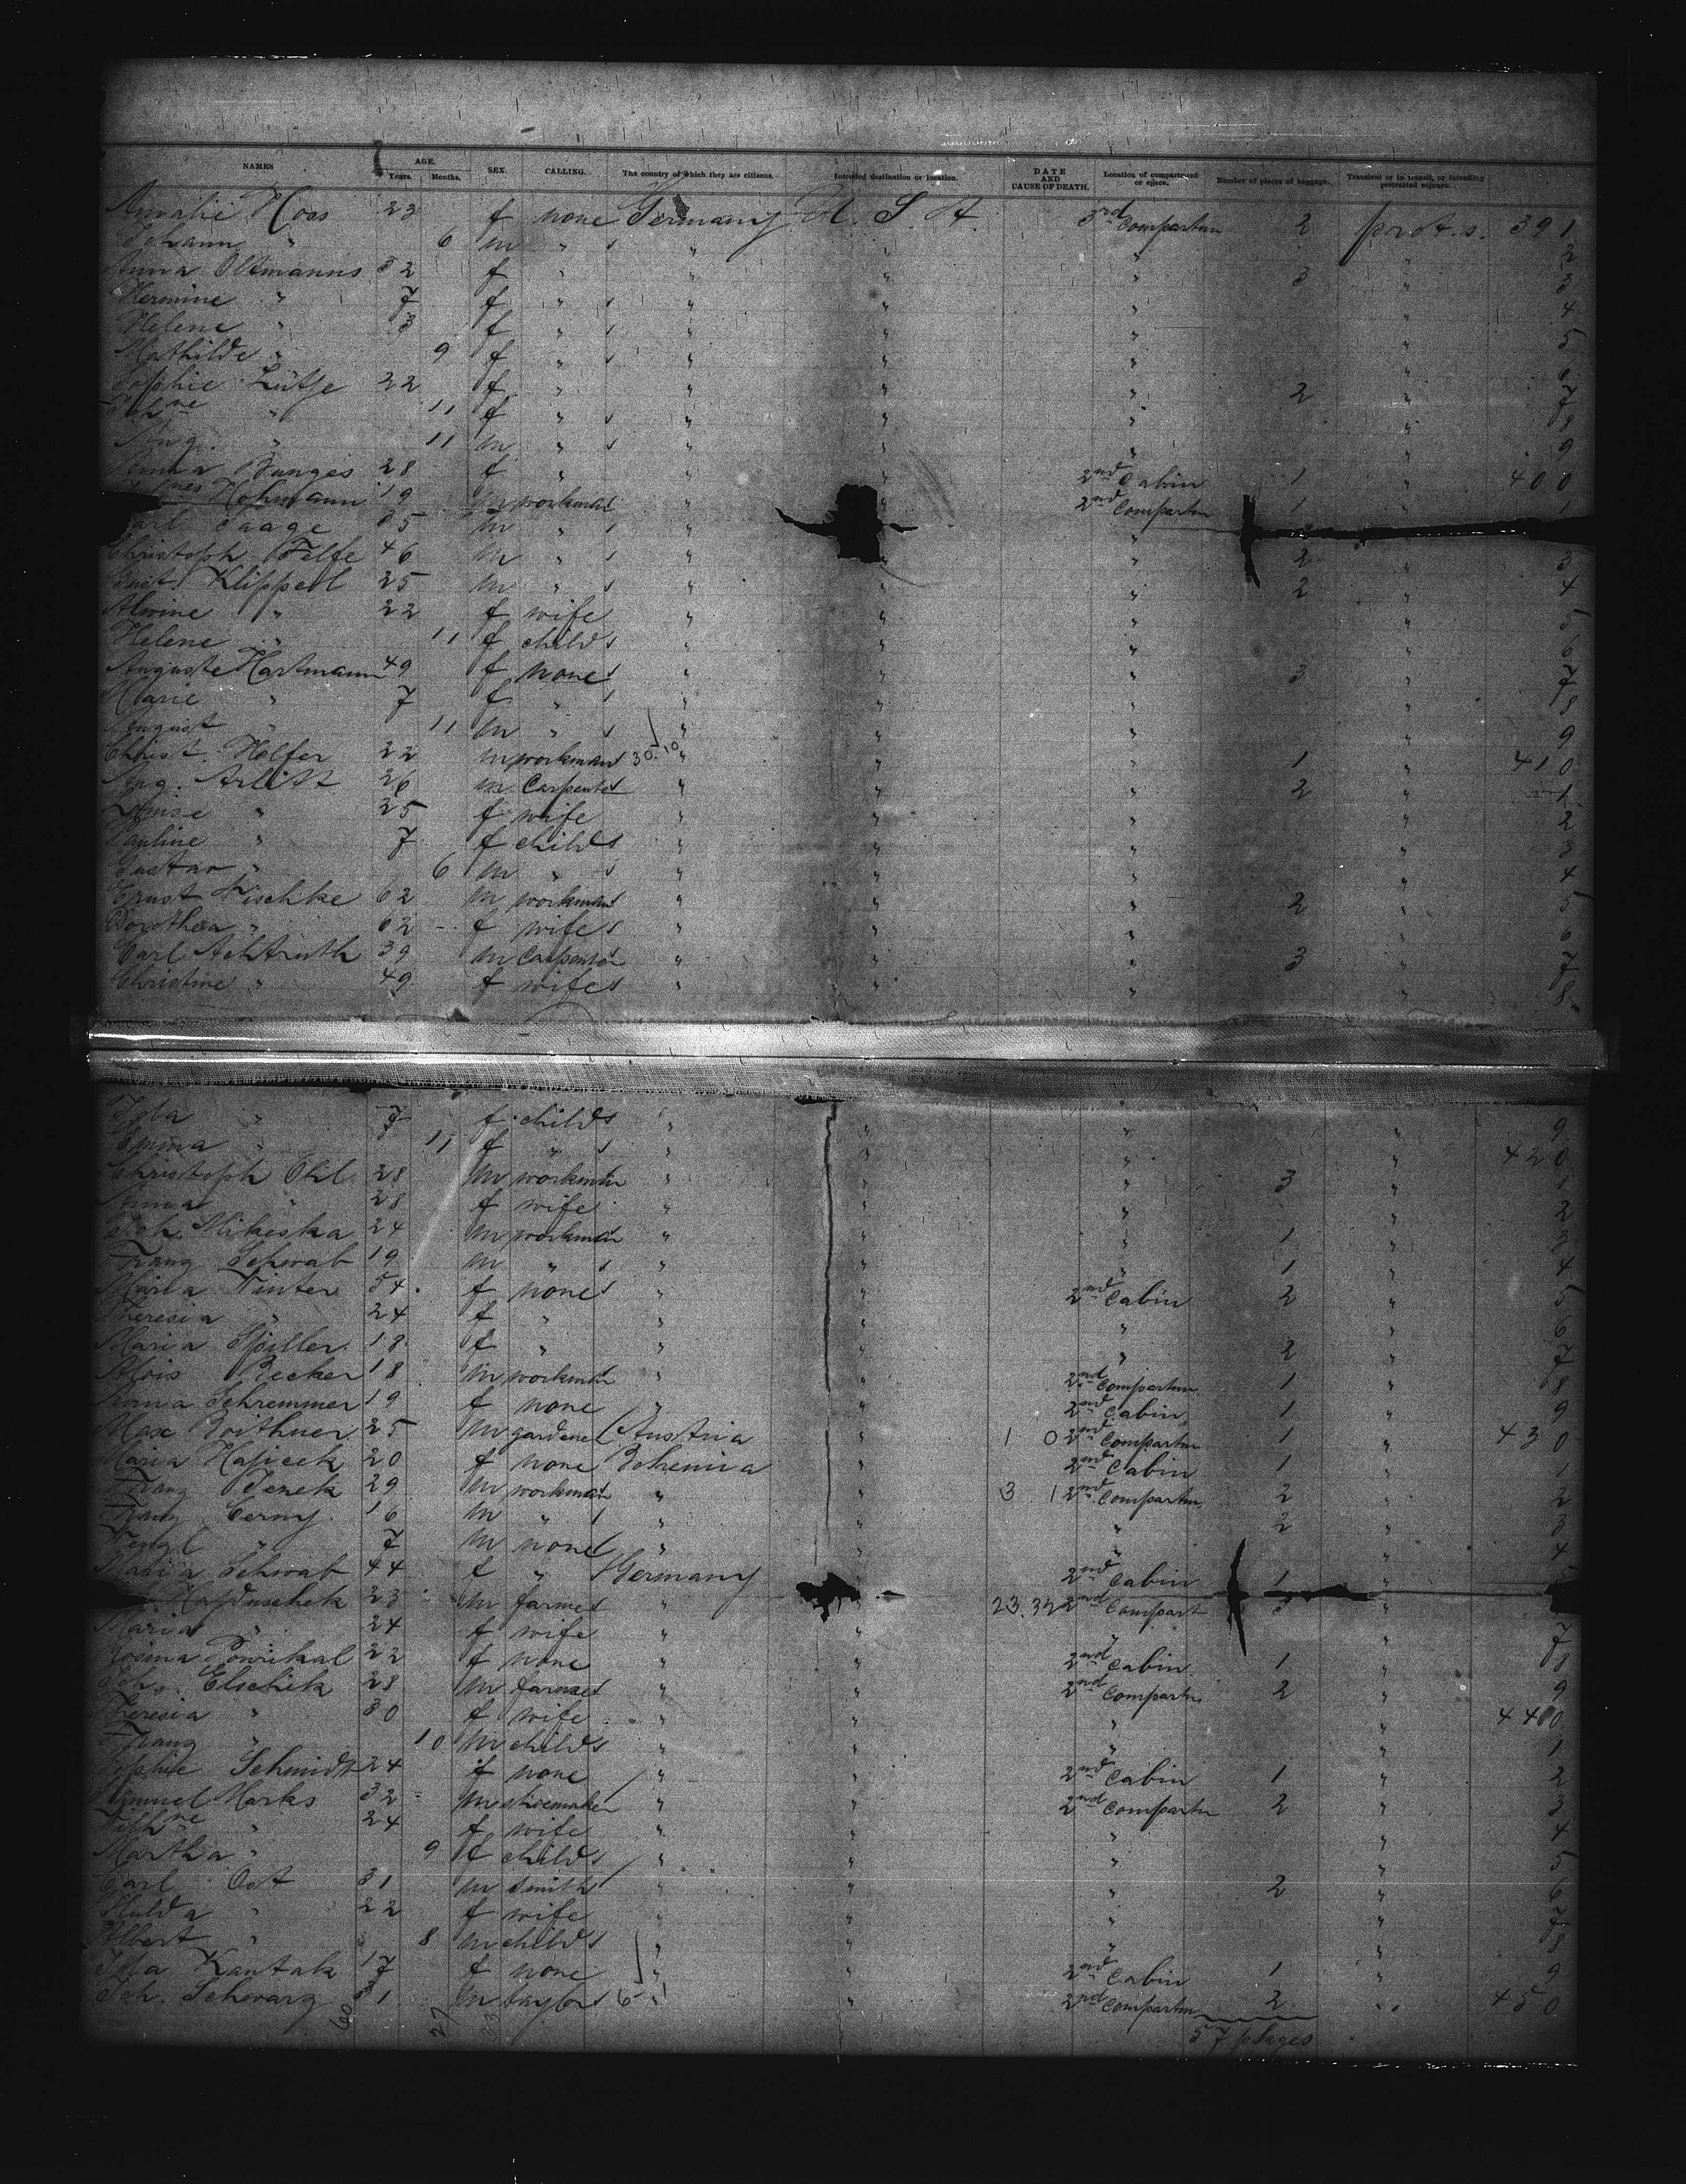 NAMES AGE. Years. Months. SEX. CALLING. The country of which they are citizens. Intended destination or location. DATE AND CAUSE OF DEATH. Location of compartment or space. Number of pieces of baggage. Transient or in transit, or intending protracted sojourn.
Amalie 23 f none Germany U. S. A. 3rd Compartm 2 prot. s. 391
Johann " 6 m " " " " " 2
Anna Oltmanns 32 f " " " " 3 " 3
Hermine " 7 f " " " " " 4
Helene " 3 f " " " " " 5
Mathilde " 9 f " " " " " 6
Sophie Lütje 22 f " " " " 2 " 7
" 11 f " " " " " 8
Aug. " 11 m " " " " " 9
Anna Bunges 28 f " " " 2nd Cabin 1 " 400
Hohmann 19 m workman " " 2nd Compartm 1 " 1
Carl 35 m " " " "
Christoph Felfe 46 m " " " " 2 " 3
Gust. Klipperl 25 m " " " " 2 " 4
Alwine " 22 f wife " " " " 5
Helene " 11 f child " " " " 6
Auguste Hartmann 49 f none " " " 3 " 7
Marie " 7 f " " " " " 8
August " 11 m " " " " " 9
Christ. Holfer 22 m workman 30.10 " " " 1 " 410
Aug. Arlitt 26 m Carpenter " " " 2 " 1
Louise " 25 f wife " " " " 2
Pauline " 7 f child " " " " 3
Gustav " 6 m " " " " " 4
Ernst Nischke 62 m workman " " " 2 " 5
Dorothea " 62 f wife " " " " 6
Carl Achtruth 39 m Carpenter " " " 3 " 7
Christine " 49 f wife " " " " 8
Ida " 7 f child " " " " 9
Emma " 11 f " " " " " 420
Christoph Ohl 28 m workman " " " 3 " 1
Anna " 28 f wife " " " " 2
Joh. Mikeska 24 m workman " " " 1 " 3
Franz Schwab 19 m " " " " 1 " 4
Maria Vinter 54 f none " " 2nd Cabin 2 " 5
Theresia " 24 f " " " " " 6
Maria Spiller 18 f " " " " 2 " 7
Alois Recker 18 m workman " " 2nd Compartm 1 " 8
Anna Schremmer 19 f none " " 2nd Cabin 1 " 9
Max Boithner 25 m gardener Austria " 1 0 2nd Compartm 1 " 430
Maria Hajicek 20 f none Bohemia " 2nd Cabin 1 " 1
Franz 29 m workman " " 3 1 2nd Compartm 2 " 2
Franz Cerny 16 m " " " " 2 " 3
Wenzl " 7 m none " " " " 4
Maria Schwab 44 f " Germany " 2nd Cabin 1 "
Hajduschek 23 m farmer " " 23.32 2nd Compart 3 "
Maria " 24 f wife " " " " 7
Rosina 22 f none " " 2nd Cabin 1 " 8
Joh. Elschik 28 m farmer " " 2nd Compartm 2 " 9
Theresia " 30 f wife " " " " 440
Franz " 10 m child " " " " 1
Sophie Schmidt 24 f none " " 2nd Cabin 1 " 2
Marks 32 m shoemaker " " 2nd Compartm 2 " 3
" 24 f wife " " " " 4
Martha " 9 f child " " " " 5
Carl Ost 31 m smith " " " 2 " 6
Hulda " 22 f wife " " " " 7
Albert " 8 m child " " " " 8
Ida Kantak 17 f none " " 2nd Cabin 1 " 9
Joh. Schwarz 31 m taylor 6 " " 2nd Compartm 2 " 450
60 27 23 57 plages